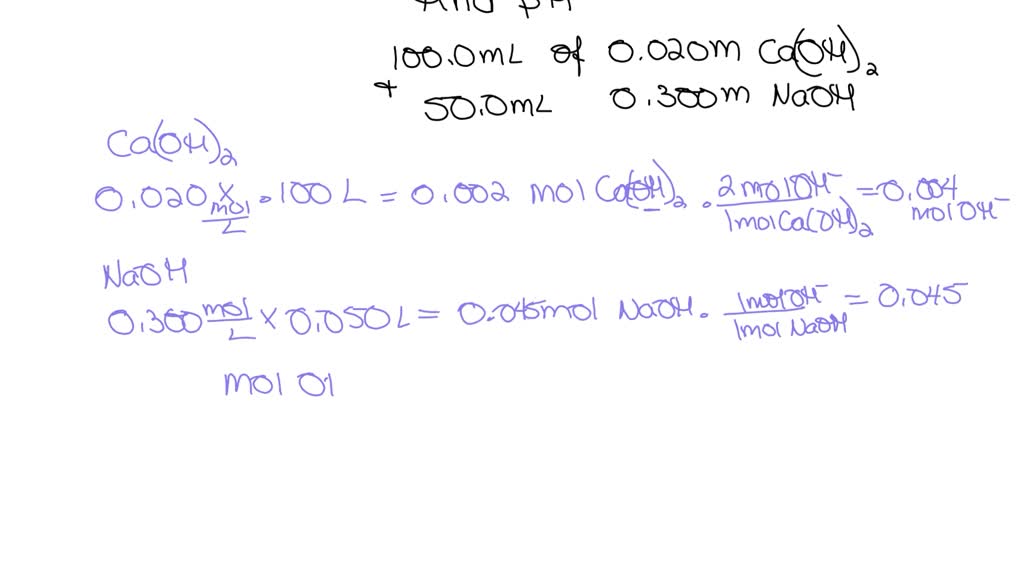 Find pH
100.0mL of 0.020m Ca(OH)2
+ 50.0mL 0.300m NaOH
Ca(OH)2
0.020 mol/L x .100 L = 0.002 mol Ca(OH)2 . 2molOH-/1molCa(OH)2 = 0.004 mol OH-
NaOH
0.300 mol/L x 0.050L = 0.045mol NaOH . 1molOH-/1mol NaOH = 0.045
mol O1